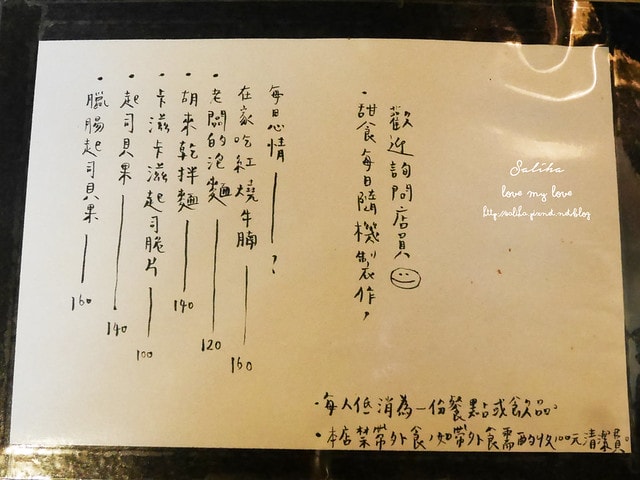 歡迎詢問店員
·甜食每日隨機製作,
每日心情——?
在家吃紅燒牛腩——160
·老闆的泡麵——120
·胡來乾拌麵——140
·卡滋卡滋起司脆片——100
·起司貝果——140
·臘腸起司貝果——160
·每人低消為一份餐點或飲品。
·本店禁帶外食,如帶外食需酌收100元清潔費。
Saliha
love my love
http://saliha.pixnet.net/blog